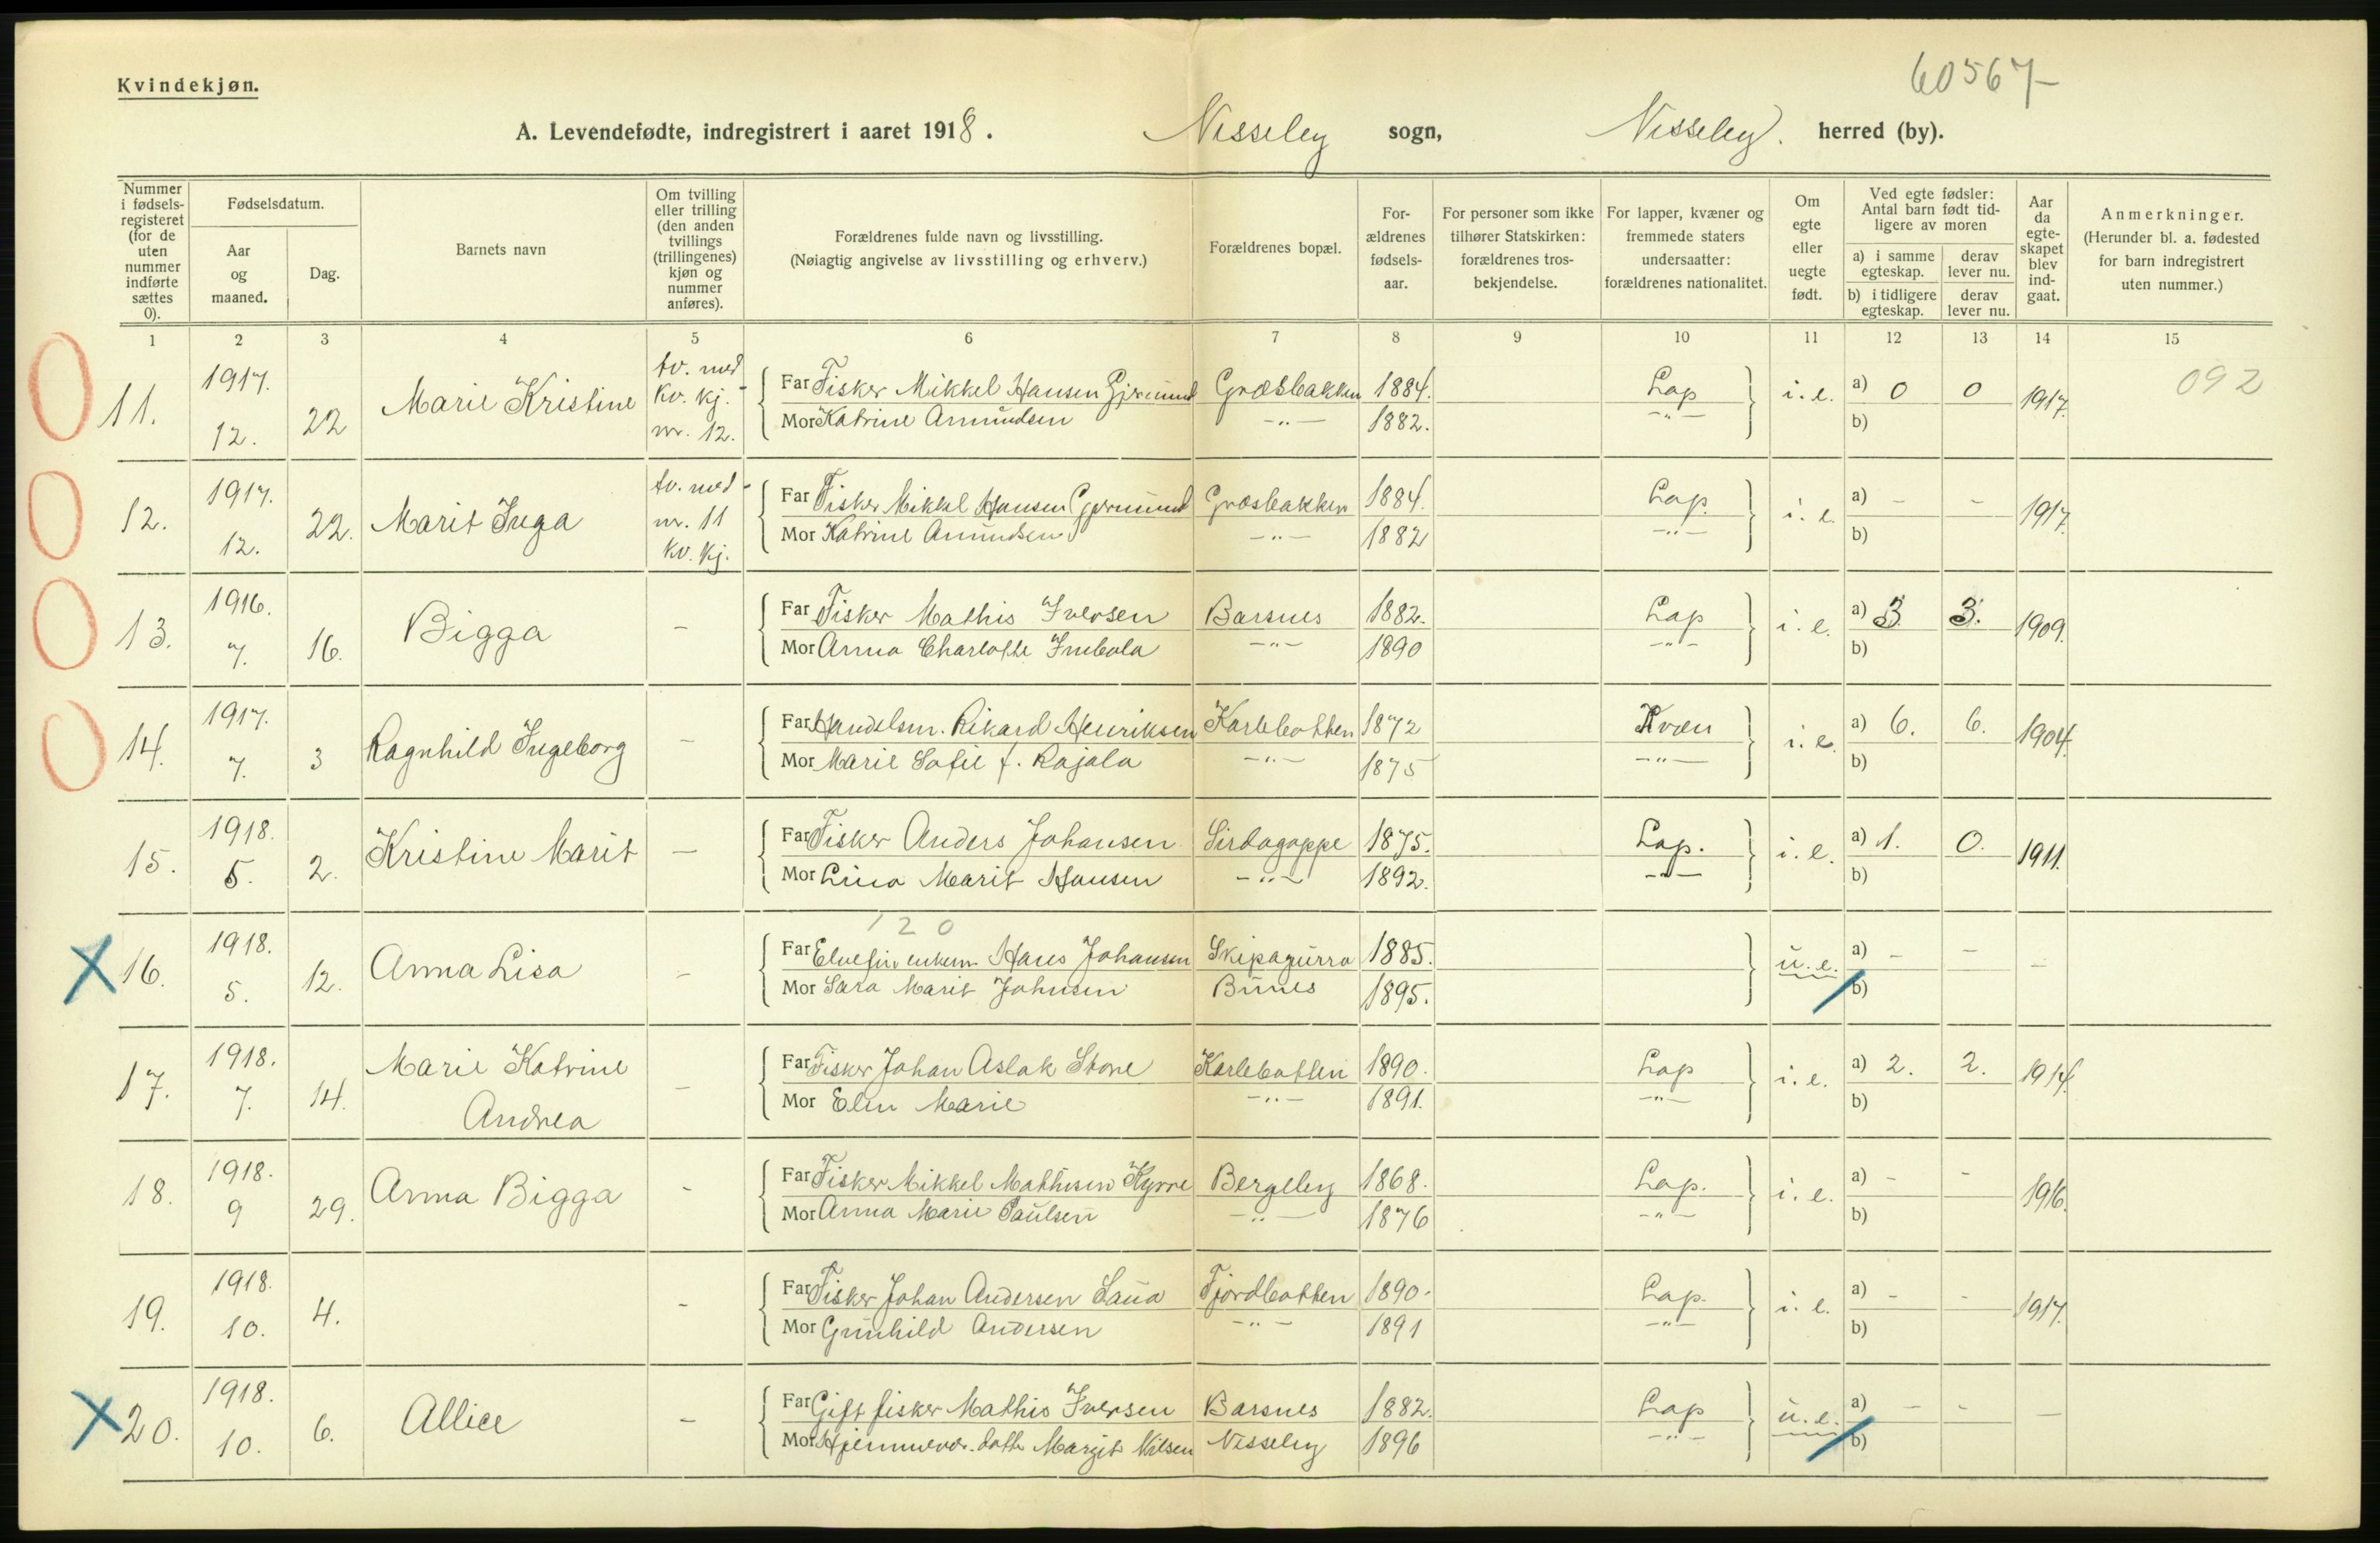 Kvindekjøn.
60567
A. Levendefødte, indregistrert i aaret 1918. Nesseby sogn, Nesseby. herred (by).
Nummer i fødsels-registeret (for de uten nummer indførte sættes 0).
Fødselsdatum.
Aar og maaned.
Dag.
Barnets navn
Om tvilling eller trilling (den anden tvillings (trillingenes) kjøn og nummer anføres).
Forældrenes fulde navn og livsstilling.
(Nøiagtig angivelse av livsstilling og erhverv.)
Forældrenes bopæl.
For-ældrenes fødsels-aar.
For personer som ikke tilhører Statskirken: forældrenes tros-bekjendelse.
For lapper, kvæner og fremmede staters undersaatter: forældrenes nationalitet.
Om egte eller uegte født.
Ved egte fødsler: Antal barn født tid-ligere av moren
a) i samme egteskap.
derav lever nu.
b) i tidligere egteskap.
derav lever nu.
Aar da egte-skapet blev ind-gaat.
Anmerkninger.
(Herunder bl. a. fødested for barn indregistrert uten nummer.)
1 2 3 4 5 6 7 8 9 10 11 12 13 14 15
11. 1917. 12. 22 Marie Kristine tv. med kv. kj. nr. 12. i. e. a) 0 0 b) 1917. 092
Far Fisker Mikkel Hansen Gjermund Græsbakken 1884. Lap
Mor Katrine Amundsen -"- 1882. -"-
12. 1917. 12. 22. Marit Inga tv. med nr. 11 kv. kj. i. e. a) - - b) 1917.
Far Fisker Mikkel Hansen Gjermund Græsbakken 1884. Lap.
Mor Katrine Amundsen -"- 1882 -"-
13. 1916. 7. 16. Bigga - i. e. a) 3 3. b) 1909.
Far Fisker Mathis Iversen Barsnes 1882. Lap
Mor Anna Charlotte Imbola -"- 1890 -"-
14. 1917. 7. 3 Ragnhild Ingeborg - i. e. a) 6. 6. b) 1904.
Far Handelsm. Rikard Henriksen Karlebotten 1872 Kvæn
Mor Marie Sofie f. Rajala -"- 1875 -"-
15. 1918. 5. 2. Kristine Marit - i. e. a) 1. 0. b) 1911.
Far Fisker Anders Johansen Sirdagoppe 1875. Lap.
Mor Lina Marit Hansen -"- 1892. -"-
120
16. 1918. 5. 12. Anna Lisa - u. e. a) - - b) -
Far Hans Johansen Skipagurra 1885.
Mor Sara Marit Johnsen Bunes 1895.
17. 1918. 7. 14. Marie Katrine Andrea - i. e. a) 2. 2. b) 1914.
Far Fisker Johan Aslak Store Karlebotten 1890. Lap
Mor Elen Marie -"- 1891. -"-
18. 1918. 9 29. Anna Bigga - i. e. a) - - b) 1916.
Far Fisker Mikkel Mathisen Kyrre Bergeby 1868. Lap.
Mor Anna Marie Paulsen -"- 1876 -"-
19. 1918. 10. 4. - i. e. a) - - b) 1917.
Far Fisker Johan Andersen Saua Fjordbotten 1890. Lap.
Mor Gunhild Andersen -"- 1891 -"-
20. 1918. 10. 6. Allice - u. e. a) - - b) -
Far Gift fisker Mathis Iversen Barsnes 1882. Lap
Mor Hjemmevær. datt. Margit Nilsen Nesseby 1896 -"-